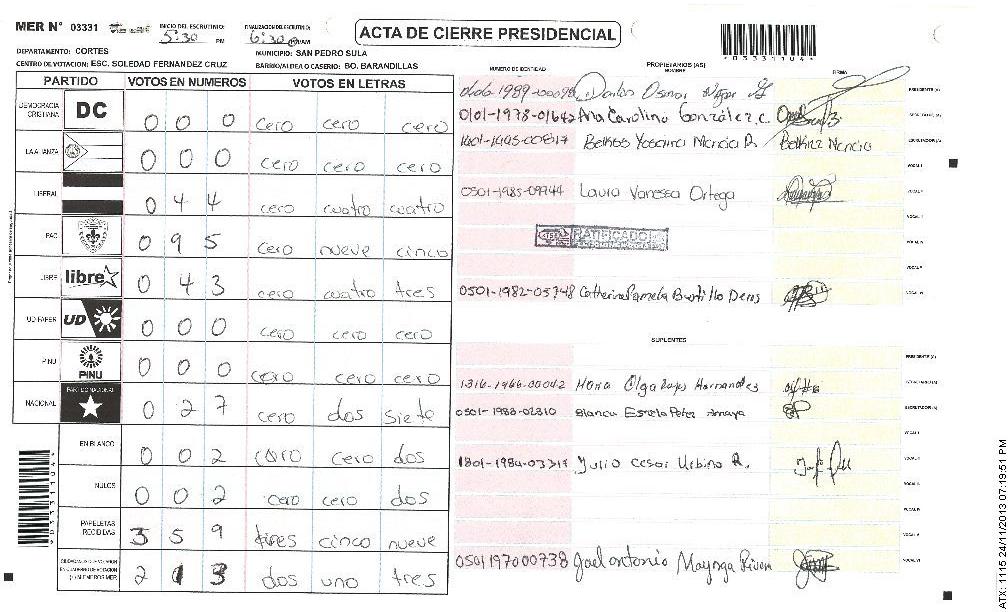 MER N° 03331 INICIO DEL ESCRUTINIO: 5:30 PM FINALIZACION DEL ESCRUTINIO: 6:30 PM/AM
ACTA DE CIERRE PRESIDENCIAL
*03331104*
DEPARTAMENTO: CORTES MUNICIPIO: SAN PEDRO SULA
CENTRO DE VOTACION: ESC. SOLEDAD FERNANDEZ CRUZ BARRIO/ALDEA O CASERIO: BO. BARANDILLAS
PARTIDO VOTOS EN NUMEROS VOTOS EN LETRAS
DEMOCRACIA CRISTIANA DC 0 0 0 cero cero cero
LA ALIANZA 0 0 0 cero cero cero
LIBERAL 0 4 4 cero cuatro cuatro
PAC 0 9 5 cero nueve cinco
LIBRE libre 0 4 3 cero cuatro tres
UD-FAPER UD 0 0 0 cero cero cero
PINU PINU 0 0 0 cero cero cero
NACIONAL PARTIDO NACIONAL 0 2 7 cero dos siete
EN BLANCO 0 0 2 cero cero dos
NULOS 0 0 2 cero cero dos
PAPELETAS RECIBIDAS 3 5 9 tres cinco nueve
2 1 3 dos uno tres
*03331104*
NUMERO DE IDENTIDAD PROPIETARIOS (AS) NOMBRE FIRMA
PRESIDENTE (A)
0101-1978-01642 Ana Carolina González c. SECRETARIO (A)
Belkis Yosarira Mancia R. Belkiz Mancia ESCRUTADOR (A)
VOCAL I
0501-1985-09944 Laura Vanessa Ortega VOCAL II
VOCAL III
RATIFICADO VOCAL IV
VOCAL V
0501-1982-05748 Catherine Pamela Bustillo Deras VOCAL VI
SUPLENTES
PRESIDENTE (A)
1316-1966-00042 Maria Olga Reyes Hernandez SECRETARIO (A)
0501-1988-02810 Blanca Estela Perez Amaya ESCRUTADOR (A)
VOCAL I
Julio Cesar Urbina R. VOCAL II
VOCAL III
VOCAL IV
VOCAL V
0501197000738 Joel antonio Rivera VOCAL VI
ATX: 1115 24/11/2013 07:19:51 PM